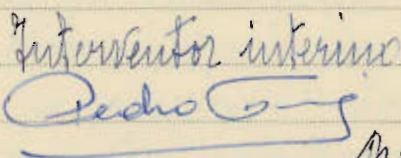 Interventor interino
Pedro